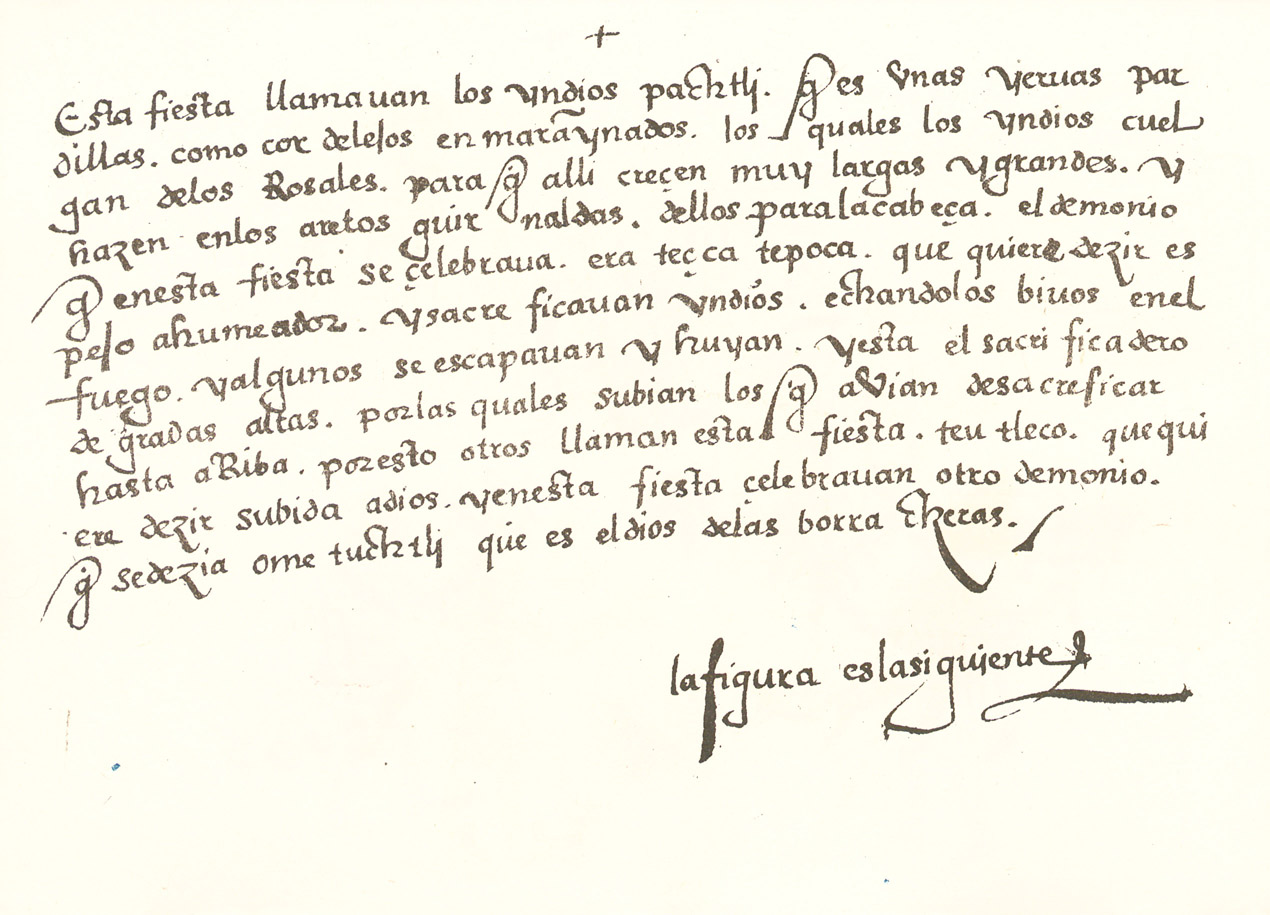 +
Esta fiesta llamauan los yndios pachtlj. q̃ es vnas yeruas par
dillas. como cor delejos en marãynados. los quales los yndios cuel
gan delos Rosales. para q̃ alli creçen muy largas y grandes. y
hazen enlos aretos guir naldas. dellos paralacabeça. el demonio
q̃ enesta fiesta se çelebraua. era tezca tepoca. que quiere dezir es
pejo ahumeador. ysacre ficauan yndios. echandolos biuos enel
fuego. yalgunos se escapauan y huyan. yesta el sacri ficadero
de gradas altas. porlas quales subian los q̃ aVian desacreficar
hasta aRiba. poresto otros llaman esta fiesta. teu tleco. quequi
ere dezir subida adios. yenesta fiesta çelebrauan otro demonio.
q̃ sedezia ome tuchtlj que es eldios delas borra cheras.
lafigura eslasiguiente